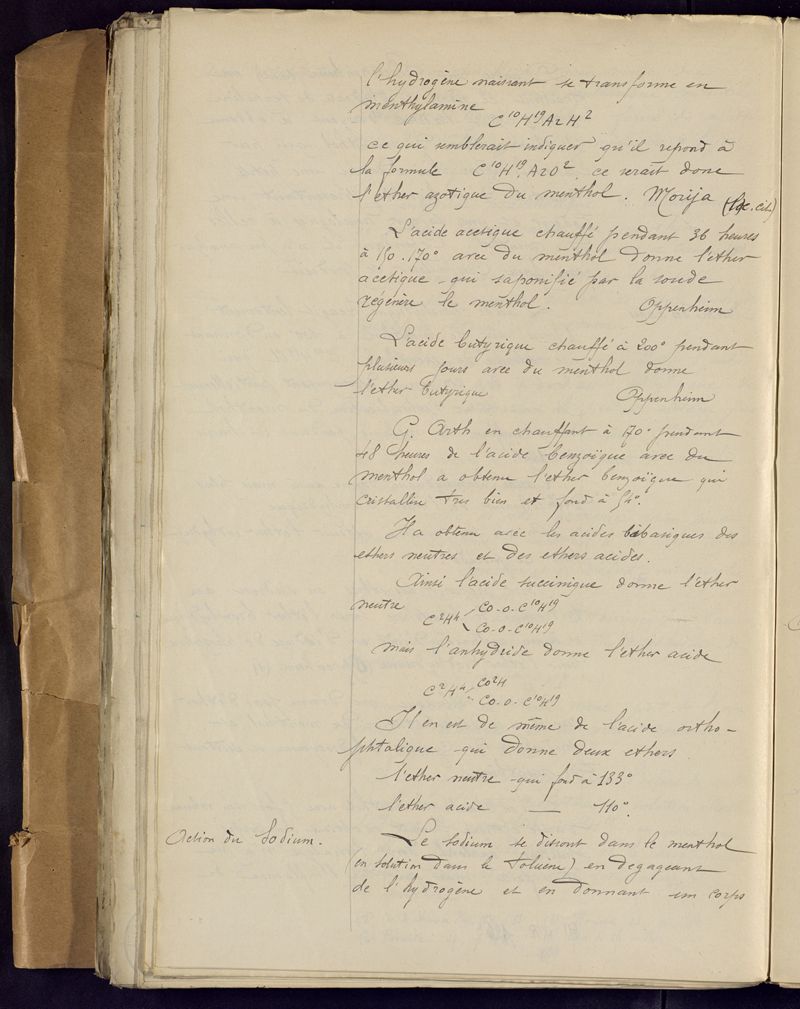 l'hydrogène naissant se transforme en
menthylamine
C¹⁰H¹⁹AzH²
ce qui semblerait indiquer qu'il repond à
la formule C¹⁰H¹⁹.AzO², ce serait donc
l'ether azotique du menthol. Morija (loc. cit.)
L'acide acetique chauffé pendant 36 heures
à 150.170° avec du menthol donne l'ether
acetique qui saponifié par la soude
régénère le menthol. Oppenheim
L'acide butyrique chauffé à 200° pendant
plusieurs jours avec du menthol donne
l'ether butyrique Oppenheim
G. Arth en chauffant à 170° pendant
48 heures de l'acide benzoïque avec du
menthol a obtenu l'ether benzoïque qui
cristallise tres bien et fond à 54°.
Il a obtenu avec les acides bibasiques des
ethers neutres et des ethers acides.
Ainsi l'acide succinique donne l'ether
neutre
C²H⁴ CO-O-C¹⁰H¹⁹
CO-O-C¹⁰H¹⁹
mais l'anhydride donne l'ether acide
C²H⁴ CO²H
CO-O-C¹⁰H¹⁹
Il en est de même de l'acide ortho-
phtalique qui donne deux ethers
l'ether neutre qui fond à 133°
l'ether acide — 110°.
Action du Sodium.
Le sodium se dissout dans le menthol
(en solution dans le toluène) en degageant
de l'hydrogène et en donnant un corps